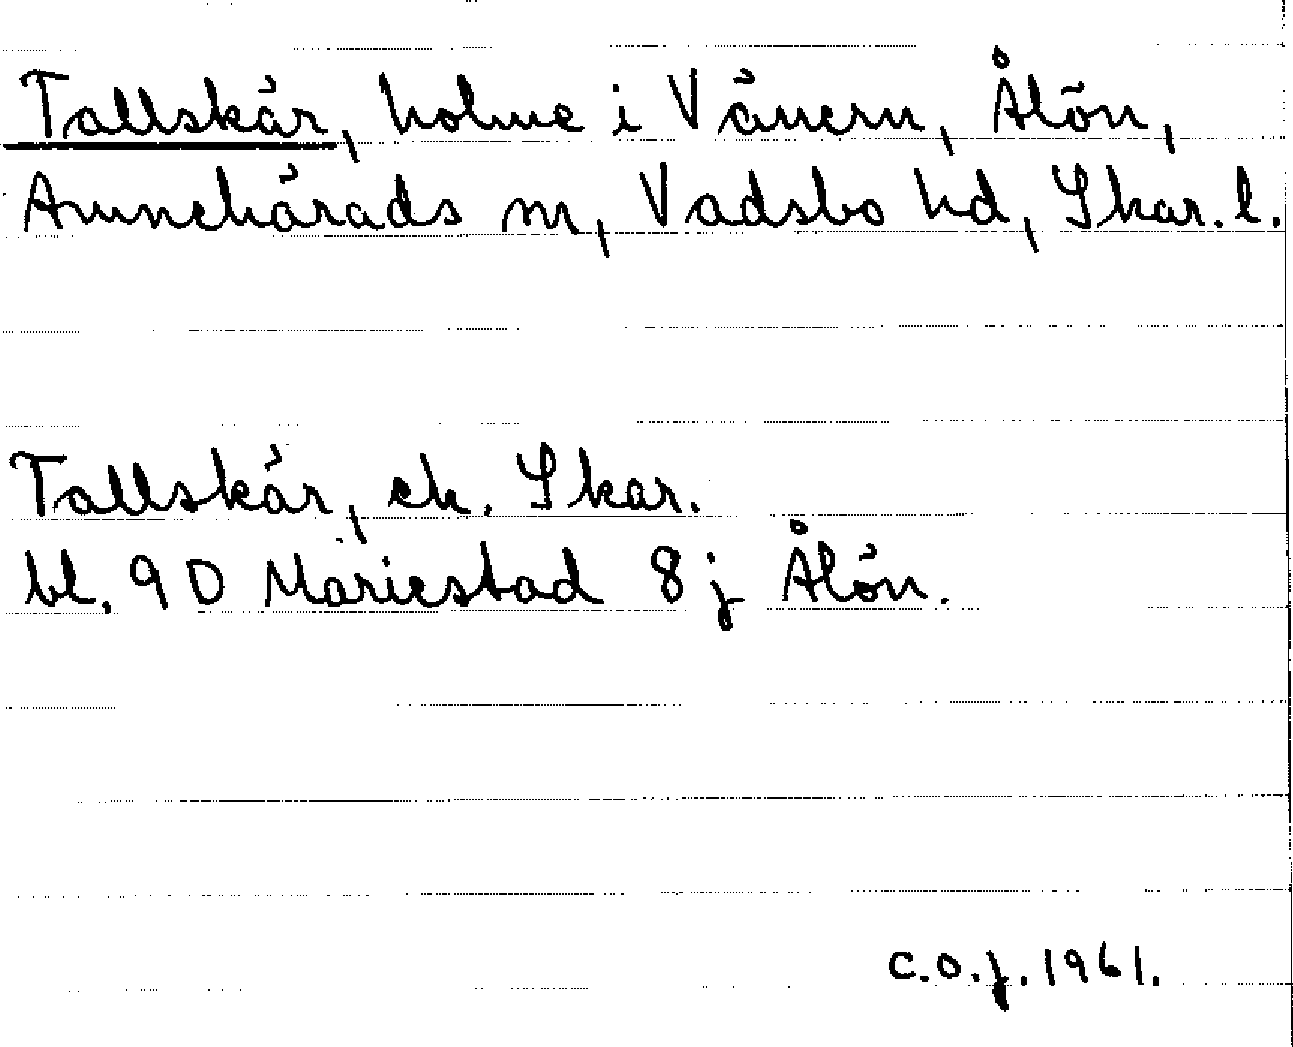 Tallskär, holme i Vänern, Ålön,
Amnehärads sn, Vadsbo hd, Skar. l.
Tallskär, ek. Skar.
bl. 9 D Mariestad 8 j Ålön.
C.O.J. 1961.